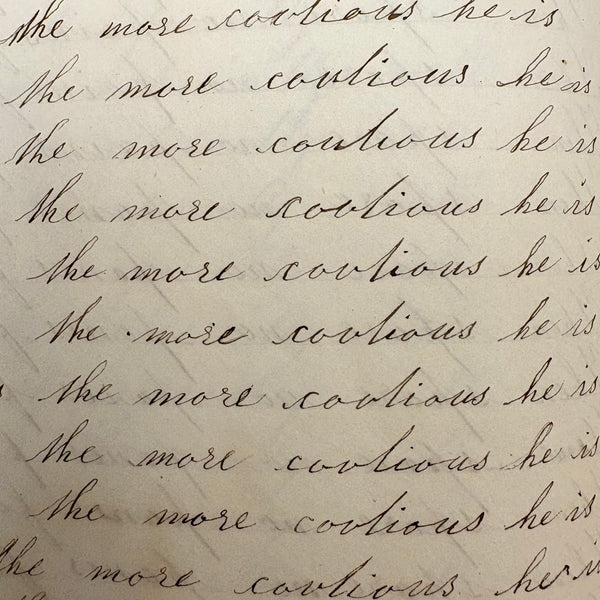 the more coutious he is
the more coutious he is
the more coutious he is
the more coutious he is
the more coutious he is
the more coutious he is
the more coutious he is
the more coutious he is
the more coutious he is
the more coutious he is